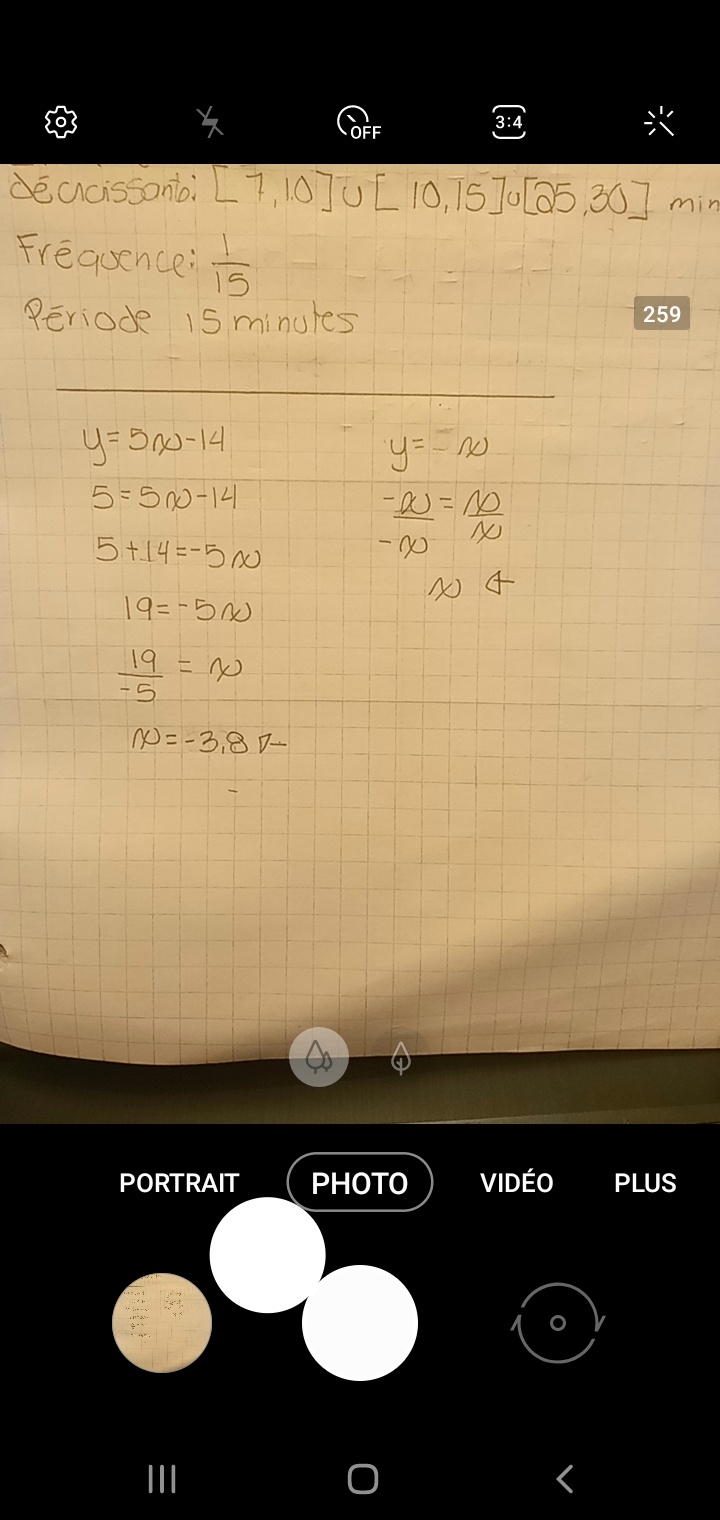 OFF
3:4
décicissanto: [ 7,10]∪[ 10,15]∪[25,30] min
Fréquence: 1/15
259
Période 15 minutes
y=5x-14
y=-x
5=5x-14
-x/-x = x/x
5+14=-5x
x ←
19=-5x
19/-5 = x
x=-3,8 ←
PORTRAIT
PHOTO
VIDÉO
PLUS